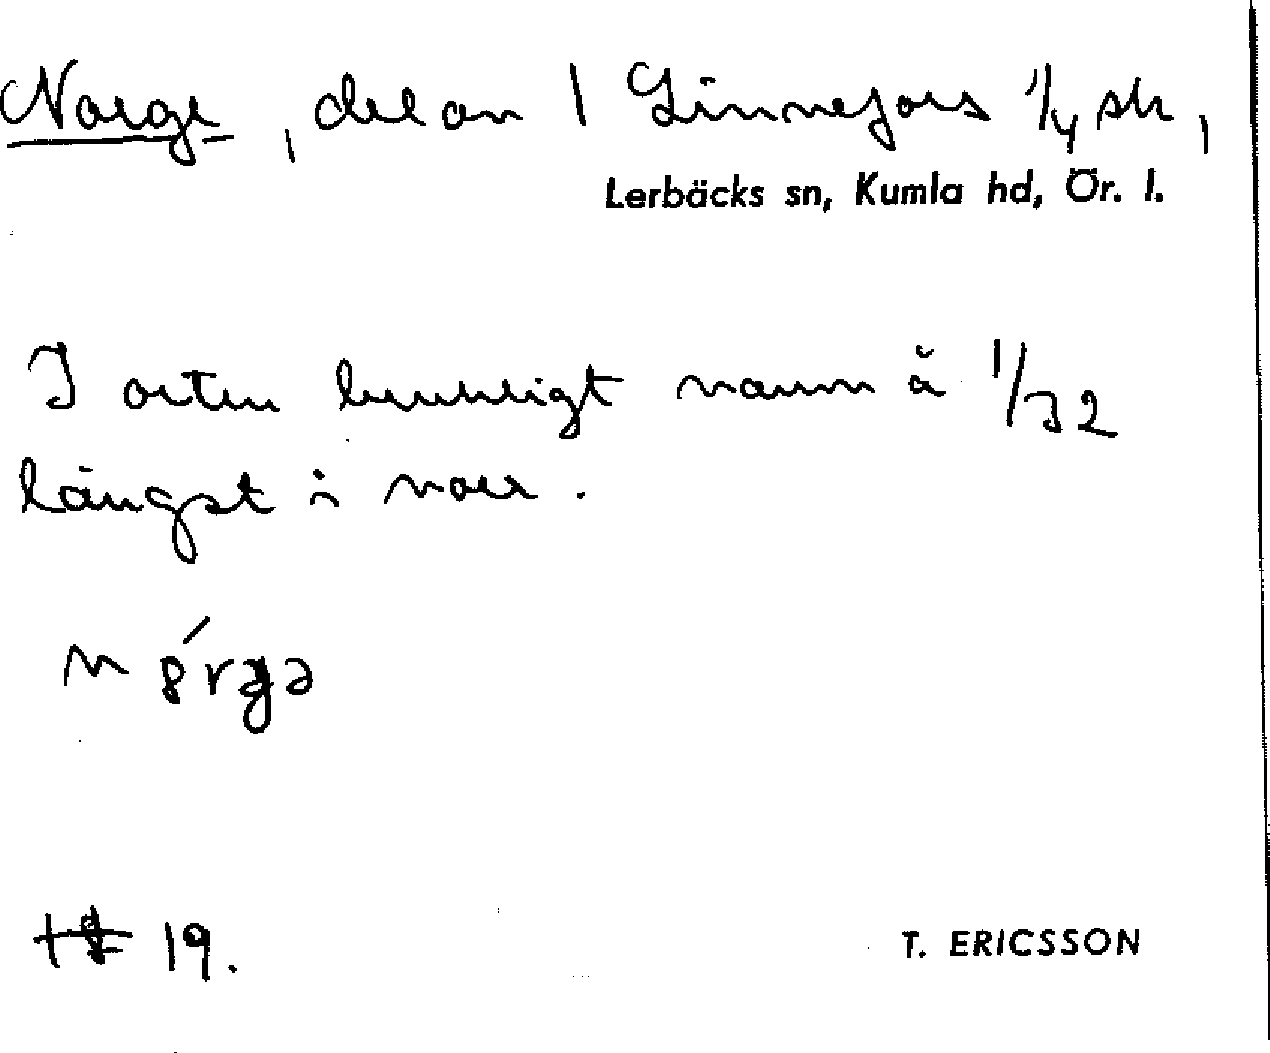 Norge, del av 1 Linnefors 1/4 sk,
Lerbäcks sn, Kumla hd, Ör. l.
I orten brukligt namn å 1/32
längst i norr.
19.
T. ERICSSON